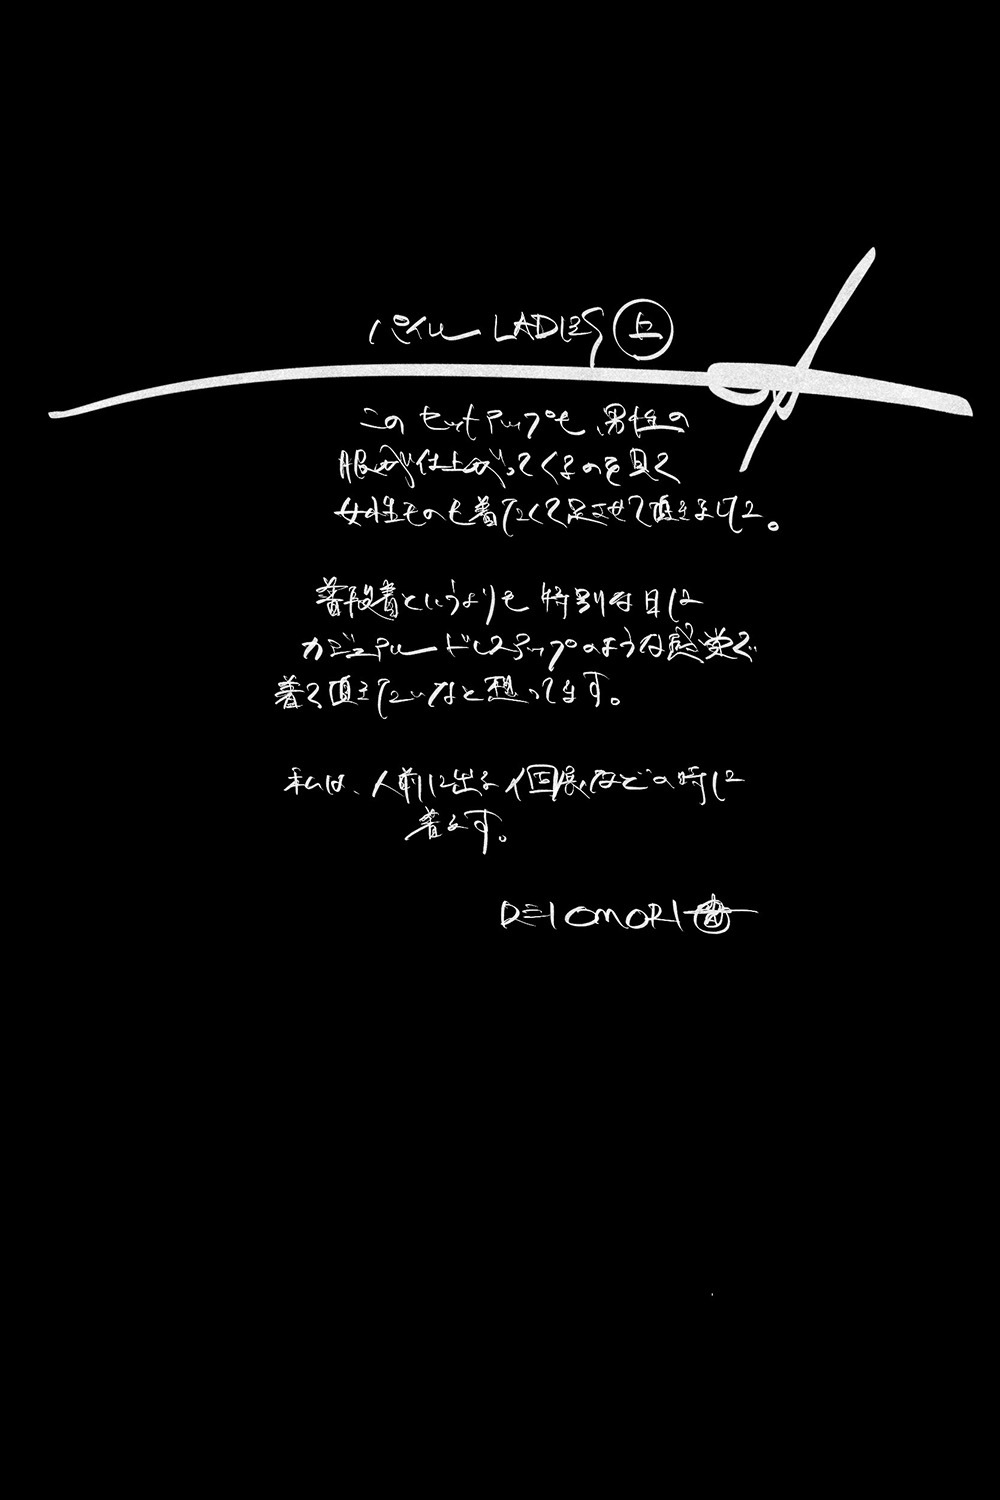 パイル LADIES 上
このセットアップも、男性の
服が仕上がってくるのを見て
女性ものも着たくて足させて頂きました。
普段着というよりも特別な日に
カジュアルードレスアップのような感覚で
着て頂きたいなと想ってます。
私は、人前に出る個展などの時に
着ます。
REI OMORI